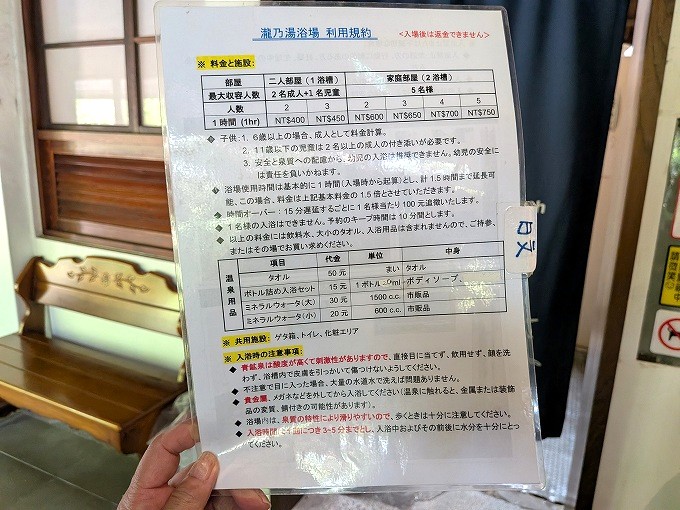 瀧乃湯浴場 利用規約
<入場後は返金できません>
※ 料金と施設:
部屋 二人部屋(1浴槽) 家庭部屋(2浴槽)
最大収容人数 2名成人+1名児童 5名様
人数 2 3 2 3 4 5
1時間(1hr) NT$400 NT$450 NT$600 NT$650 NT$700 NT$750
◆ 子供:1. 6歳以上の場合、成人として料金計算。
2. 11歳以下の児童は2名以上の成人の付き添いが必要です。
3. 安全と泉質への配慮から、幼児の入浴は推奨できません。幼児の安全に
は責任を負いかねます。
◆ 浴場使用時間は基本的に1時間(入場時から起算)とし、計1.5時間まで延長可
能、この場合、料金は上記基本料金の1.5倍とさせていただきます。
◆ 時間オーバー:15分遅延するごとに1名様当たり100元追徴いたします。
◆ 1名様の入浴はできません。予約のキープ時間は10分間とします。
◆ 以上の料金には飲料水、大小のタオル、入浴用品は含まれませんので、ご持参、
またはその場でお買い求めください。
温泉用品
項目 代金 単位 中身
タオル 50元 まい タオル
ボトル詰め入浴セット 15元 1ボトル ml ボディソープ、
ミネラルウォータ(大) 30元 1500 c.c. 市販品
ミネラルウォータ(小) 20元 600 c.c. 市販品
※ 共用施設: ゲタ箱、トイレ、化粧エリア
※ 入浴時の注意事項:
◆ 青鉱泉は酸度が高くて刺激性がありますので、直接目に当てず、飲用せず、顔を洗
わず。浴槽内で皮膚を引っかいて傷つけないようしてください。
◆ 不注意で目に入った場合、大量の水道水で洗えば問題ありません。
◆ 貴金属、メガネなどを外してから入浴してください(温泉に触れると、金属または装飾
品の変質、錆付きの可能性があります)。
◆ 浴場内は、泉質の特性により滑りやすいので、歩くときは十分に注意してください。
◆ 入浴時間は1回につき3~5分までとし、入浴中およびその前後に水分を十分にとっ
てください。
日文